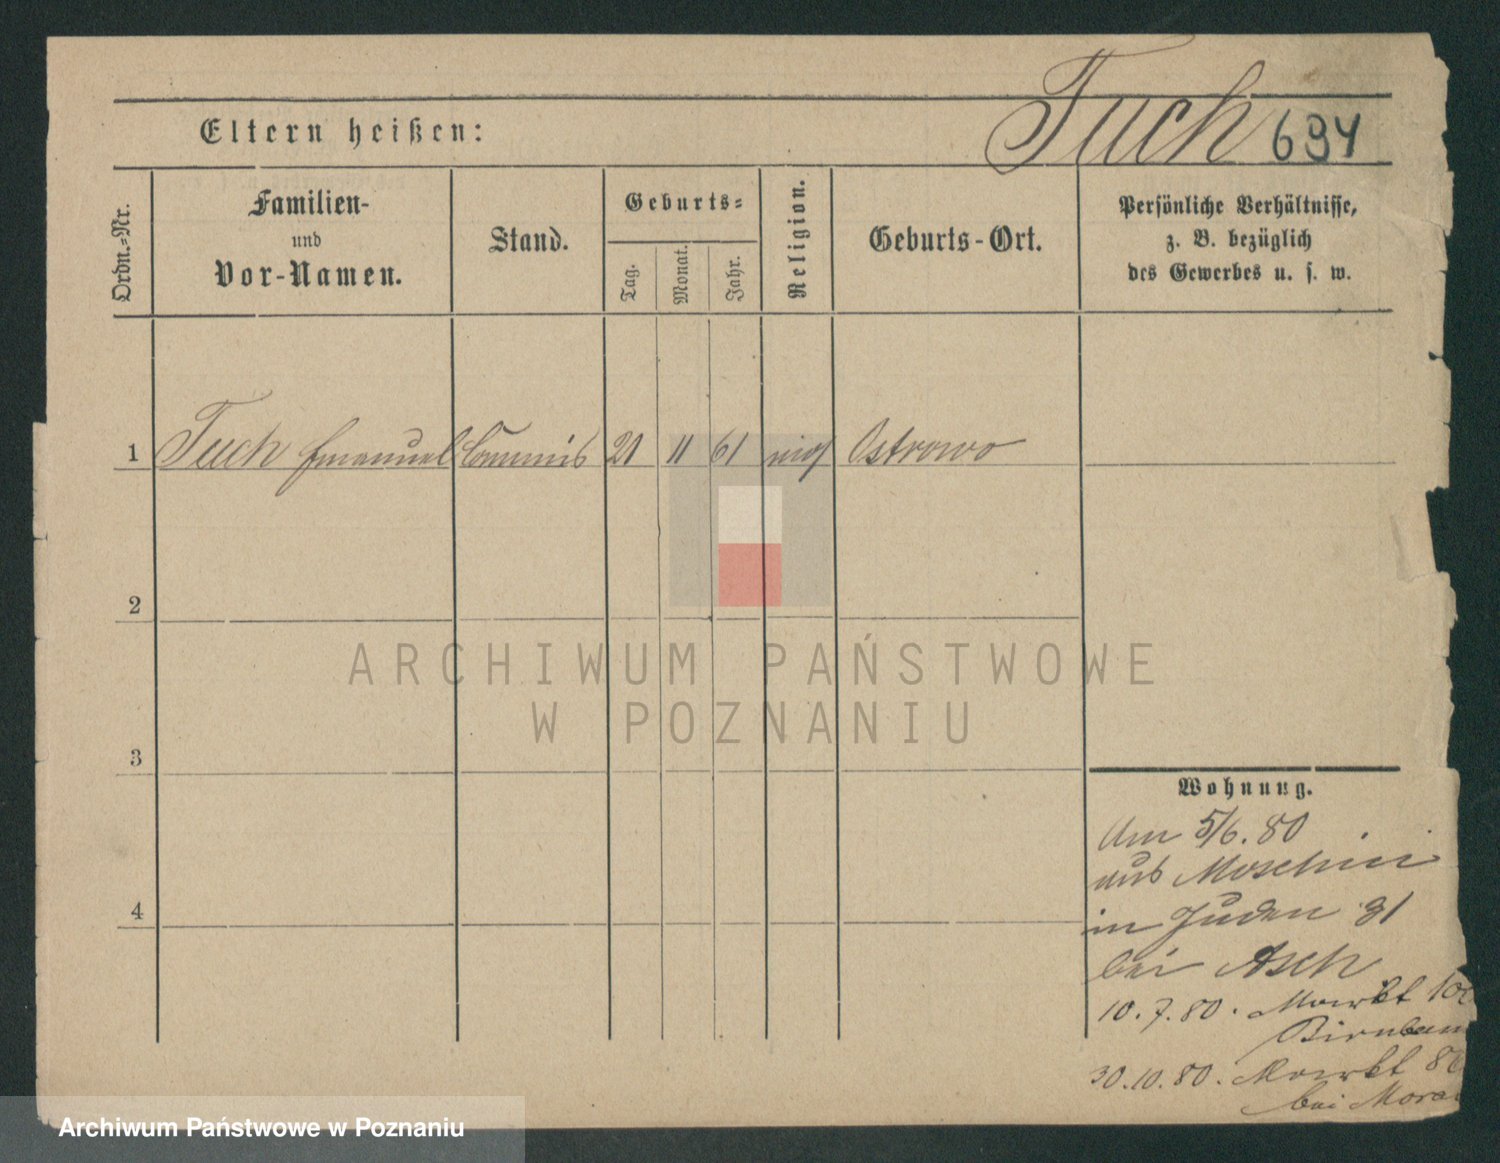 Tuch 694
Eltern heißen:
Ordn.-Nr.
Familien-
und
Vor-Namen.
Stand.
Geburts-
Tag.
Monat.
Jahr.
Religion.
Geburts-Ort.
Persönliche Verhältnisse,
z. B. bezüglich
des Gewerbes u. s. w.
1 Tuch Emanuel Commis 21 11 61 mos Ostrowo
2
3
4
Wohnung.
Am 5/6. 80
aus Moschin
in Juden 31
bei Asch
10. 7. 80. Markt
30. 10. 80. Markt
bei
ARCHIWUM PAŃSTWOWE
W POZNANIU
Archiwum Państwowe w Poznaniu